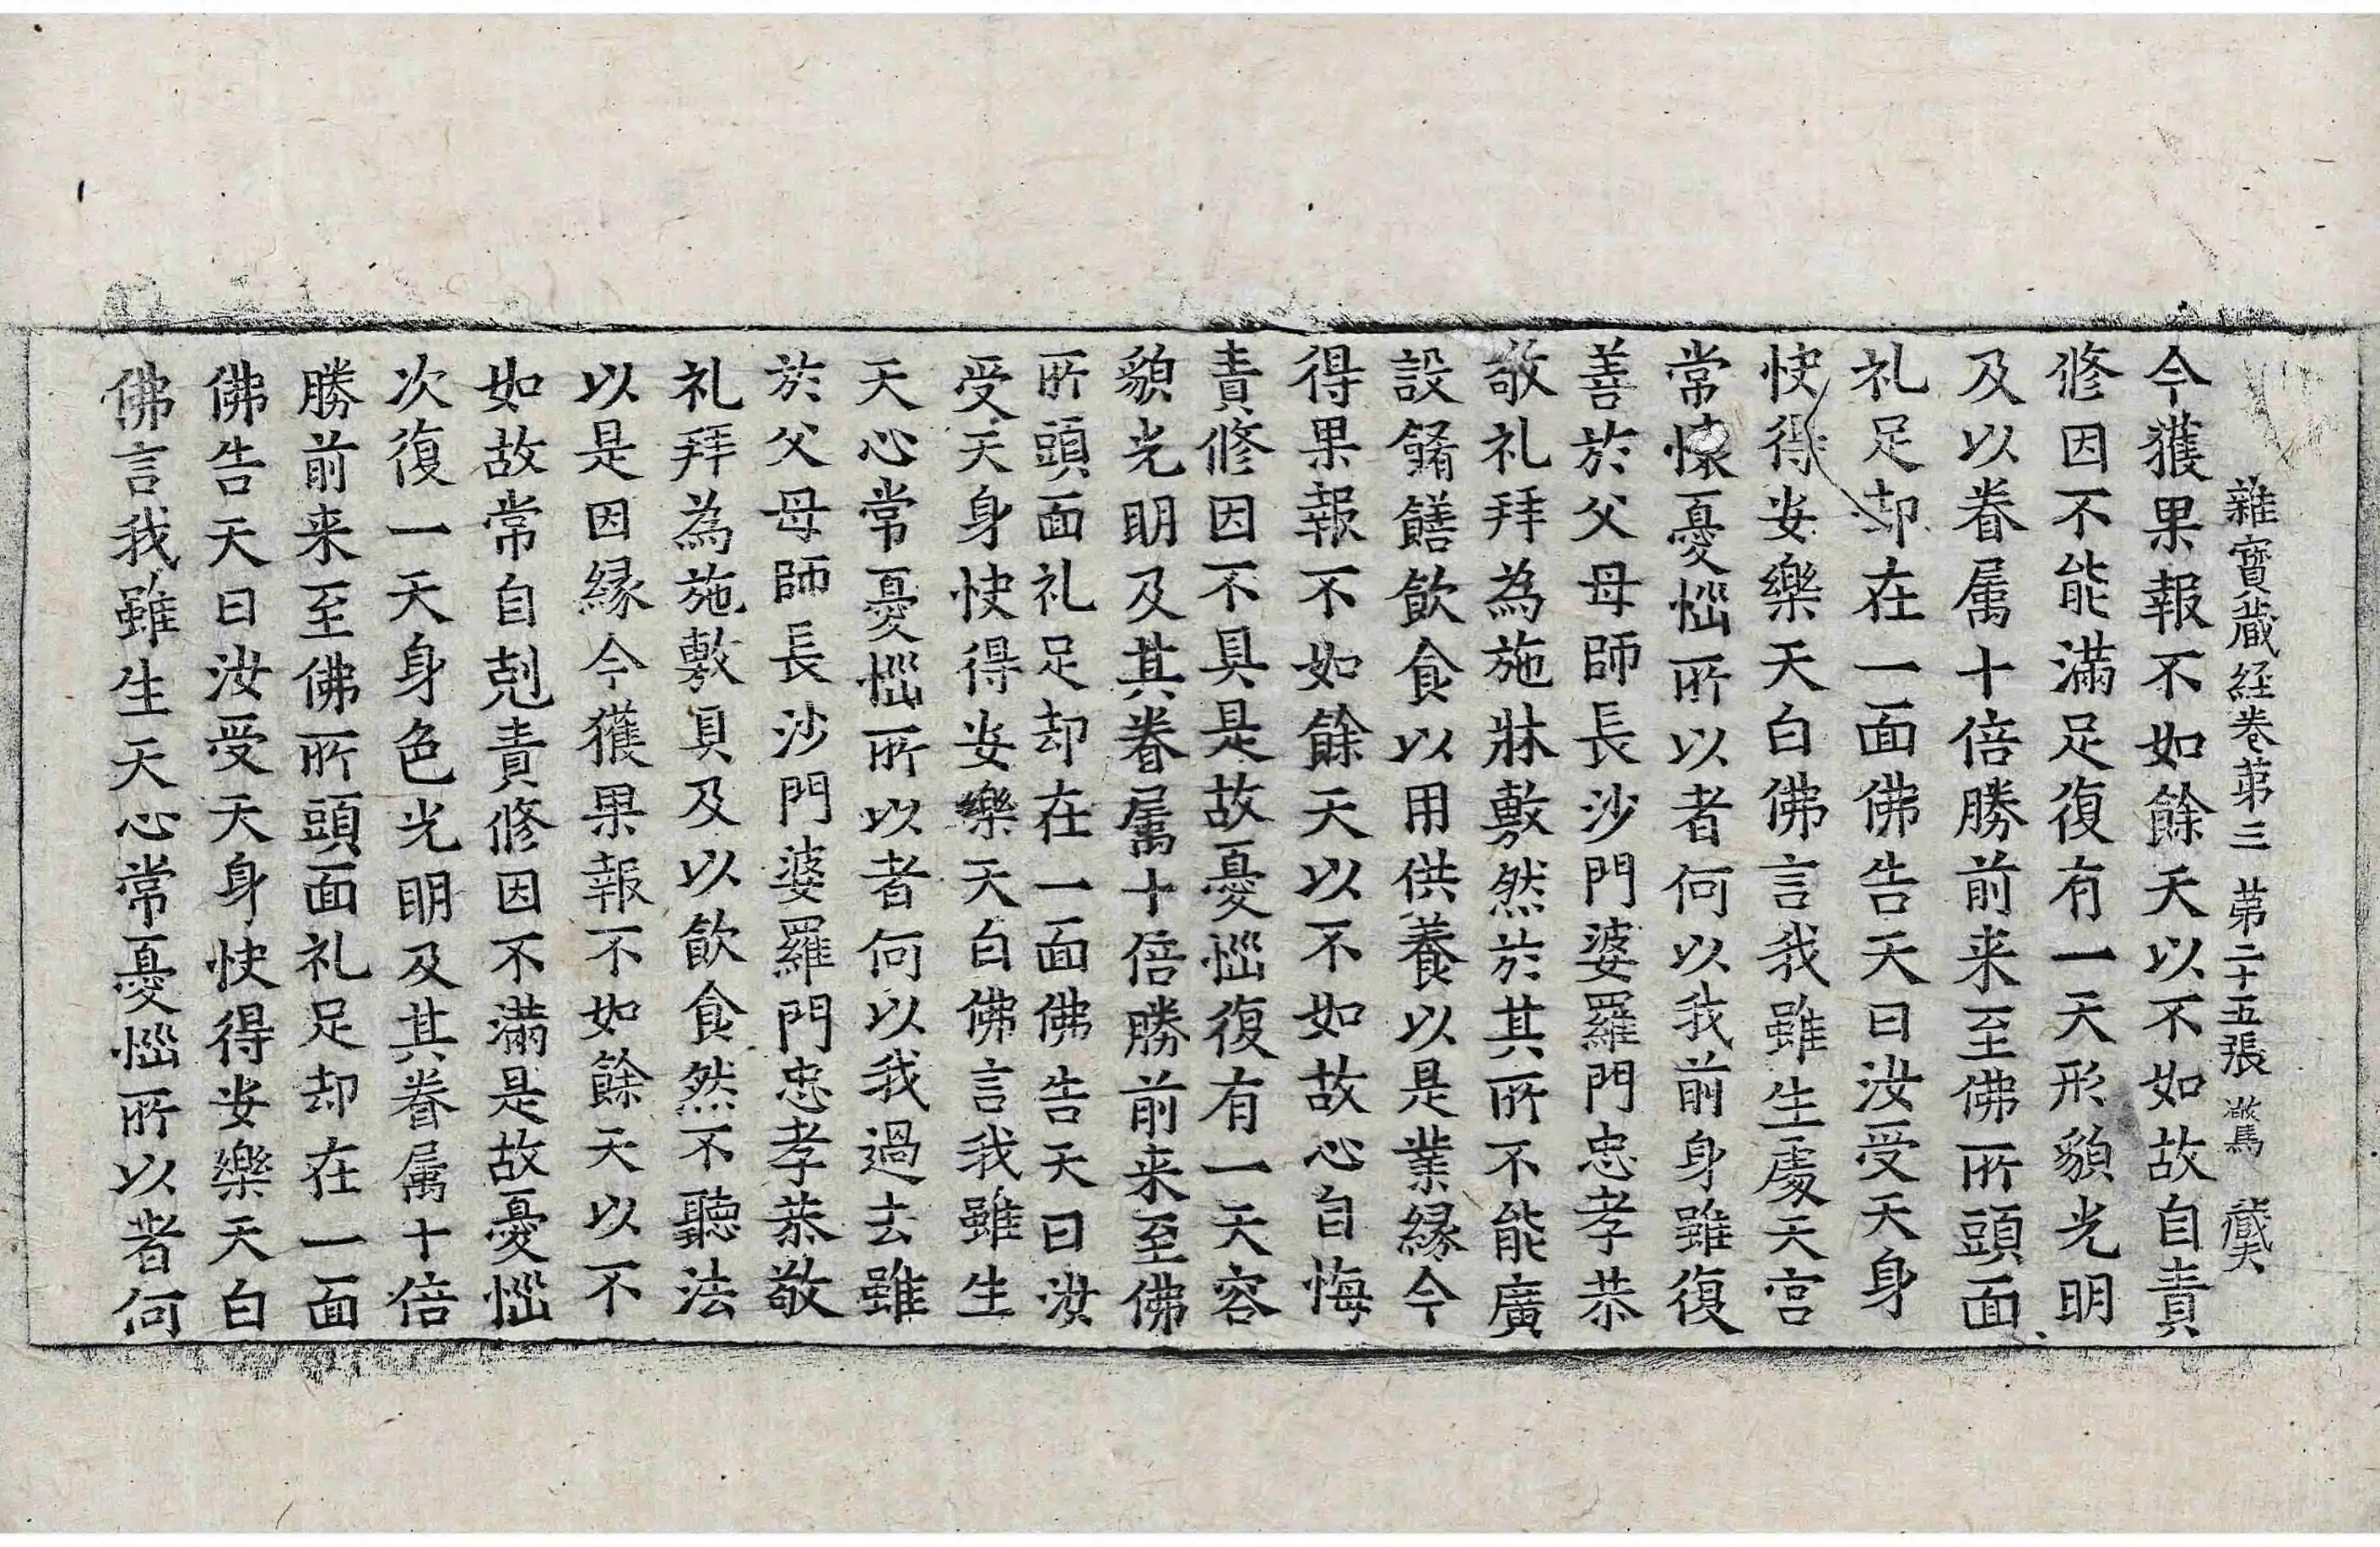 雜寶蔵経巻苐三 苐二十五張 驚 蔵
今獲果報不如餘天以不如故自責
修因不能滿足復有一天形貌光明
及以眷属十倍勝前来至佛所頭面
礼足却在一面佛告天曰汝受天身
快得安樂天白佛言我雖生處天宫
常懐憂惱所以者何以我前身雖復
善於父母師長沙門婆羅門忠孝恭
敬礼拜為施牀敷然於其所不能廣
設餚饍飲食以用供養以是業縁今
得果報不如餘天以不如故心自悔
責修因不具是故憂惱復有一天容
貌光明及其眷属十倍勝前来至佛
所頭面礼足却在一面佛告天曰汝
受天身快得安樂天白佛言我雖生
天心常憂惱所以者何以我過去雖
於父母師長沙門婆羅門忠孝恭敬
礼拜為施敷具及以飲食然不聽法
以是因縁今獲果報不如餘天以不
如故常自剋責修因不滿是故憂惱
次復一天身色光明及其眷属十倍
勝前来至佛所頭面礼足却在一面
佛告天曰汝受天身快得安樂天白
佛言我雖生天心常憂惱所以者何